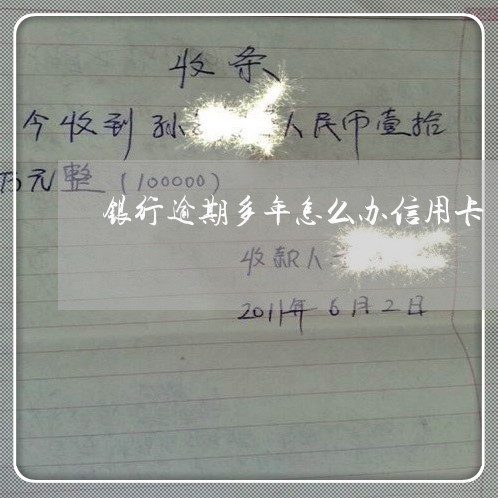 收条
今收到孙 人民币壹拾
万元整(100000)
銀行逾期多年怎么办信用卡
收款人
2011年6月2日